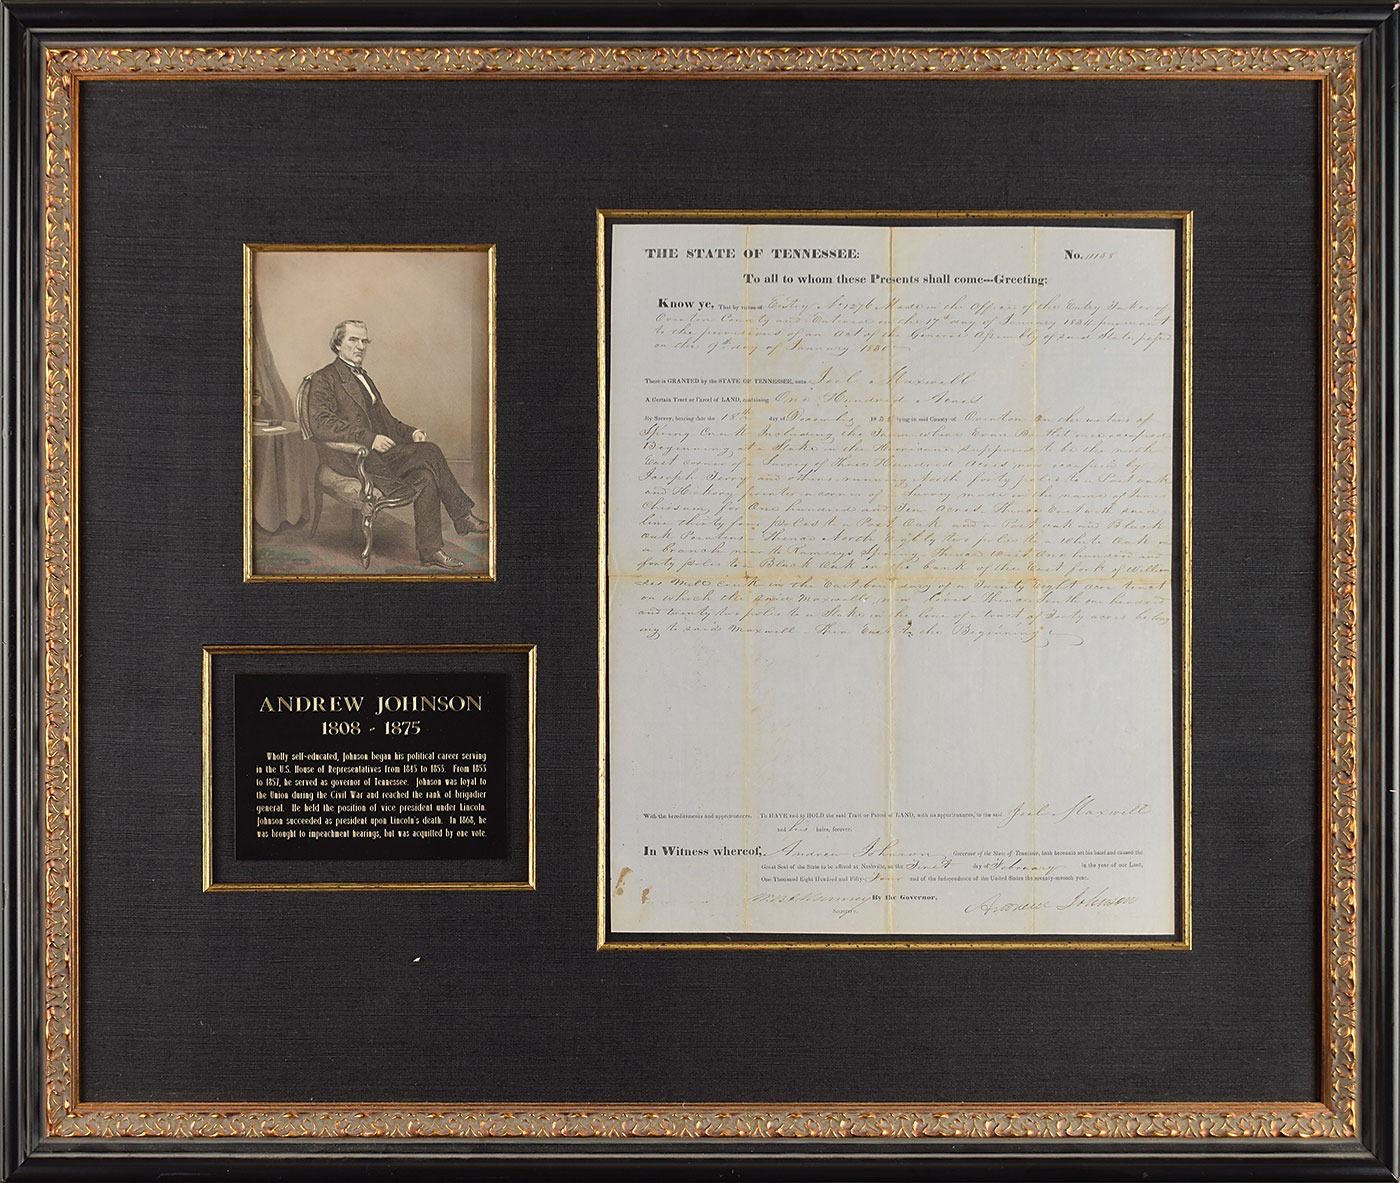 ANDREW JOHNSON
1808 - 1875
Wholly self-educated, Johnson began his political career serving
in the U.S. House of Representatives from 1843 to 1853. From 1853
to 1857, he served as governor of Tennessee. Johnson was loyal to
the Union during the Civil War and reached the rank of brigadier
general. He held the position of vice president under Lincoln.
Johnson succeeded as president upon Lincoln's death. In 1868, he
was brought to impeachment hearings, but was acquitted by one vote.
THE STATE OF TENNESSEE: No.
To all to whom these Presents shall come---Greeting:
Know ye, That by virtue of Entry No 1276 Made in the Office of the Entry Taker of
County and Entered on the 17th day of January 1834 pursuant
to the provisions of an Act of the General Assembly of said State passed
on the 9th day of January 1830
There is GRANTED by the STATE OF TENNESSEE, unto Joel Maxwell
A Certain Tract or Parcel of LAND, containing One Hundred Acres
By Survey, bearing date the 18th day of December 183 lying in said County of Overton on the waters of
Spring Creek Including the Farm where Evan now occupies
Beginning at a Stake in the Hurricane supposed to be the north
East corner of a Survey of Three Hundred Acres now occupied by
Joseph Terry and others running North forty poles to a Post oak
and Hickory a corner of a Survey made in the name of
Chissum for One hundred and Ten Acres Thence East with said
line thirty four poles to a Post Oak and a Post oak and Black
Oak Pointers Thence North Eighty two poles to a White Oak on
a branch near the Ramseys Spring Thence West One hundred and
forty poles to a Black Oak on the bank of the East fork of William
Mill Creek in the East boundary of a Twenty Eight acre tract
on which the said Maxwell now lives Thence South one hundred
and twenty two poles to a Stake in the line of a tract of Forty acres belong
ing to said Maxwell Then East to the Beginning
With the hereditaments and appurtenances. To HAVE and to HOLD the said Tract or Parcel of LAND, with its appurtenances, to the said Joel Maxwell
and his heirs, forever.
In Witness whereof, Andrew Johnson Governor of the State of Tennessee, hath hereunto set his hand and caused the
Great Seal of the State to be affixed at Nashville, on the First day of February in the year of our Lord,
One Thousand Eight Hundred and Fifty- Four and of the Independence of the United States the seventy-seventh year.
By the Governor, Andrew Johnson
Secretary.